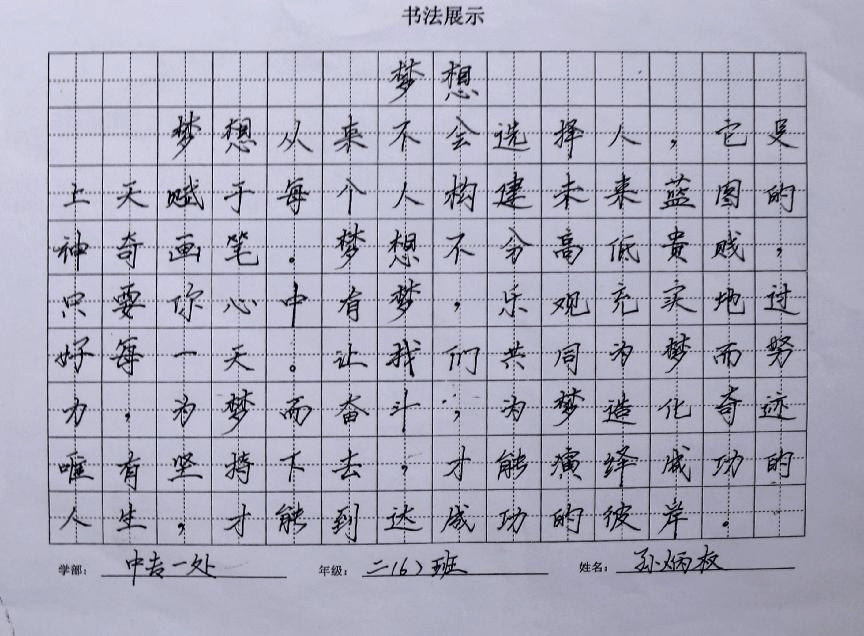 书法展示
梦想
梦想从来不会选择人，它是
上天赋于每个人构建未来蓝图的
神奇画笔。梦想不分高低贵贱，
只要你心中有梦，乐观充实地过
好每一天。让我们共同为梦而努
力，为梦而奋斗，为梦造化奇迹
唯有坚持下去，才能演绎成功的
人生，才能到达成功的彼岸。
学部：中专一处 年级：二（6）班 姓名：孙炳权